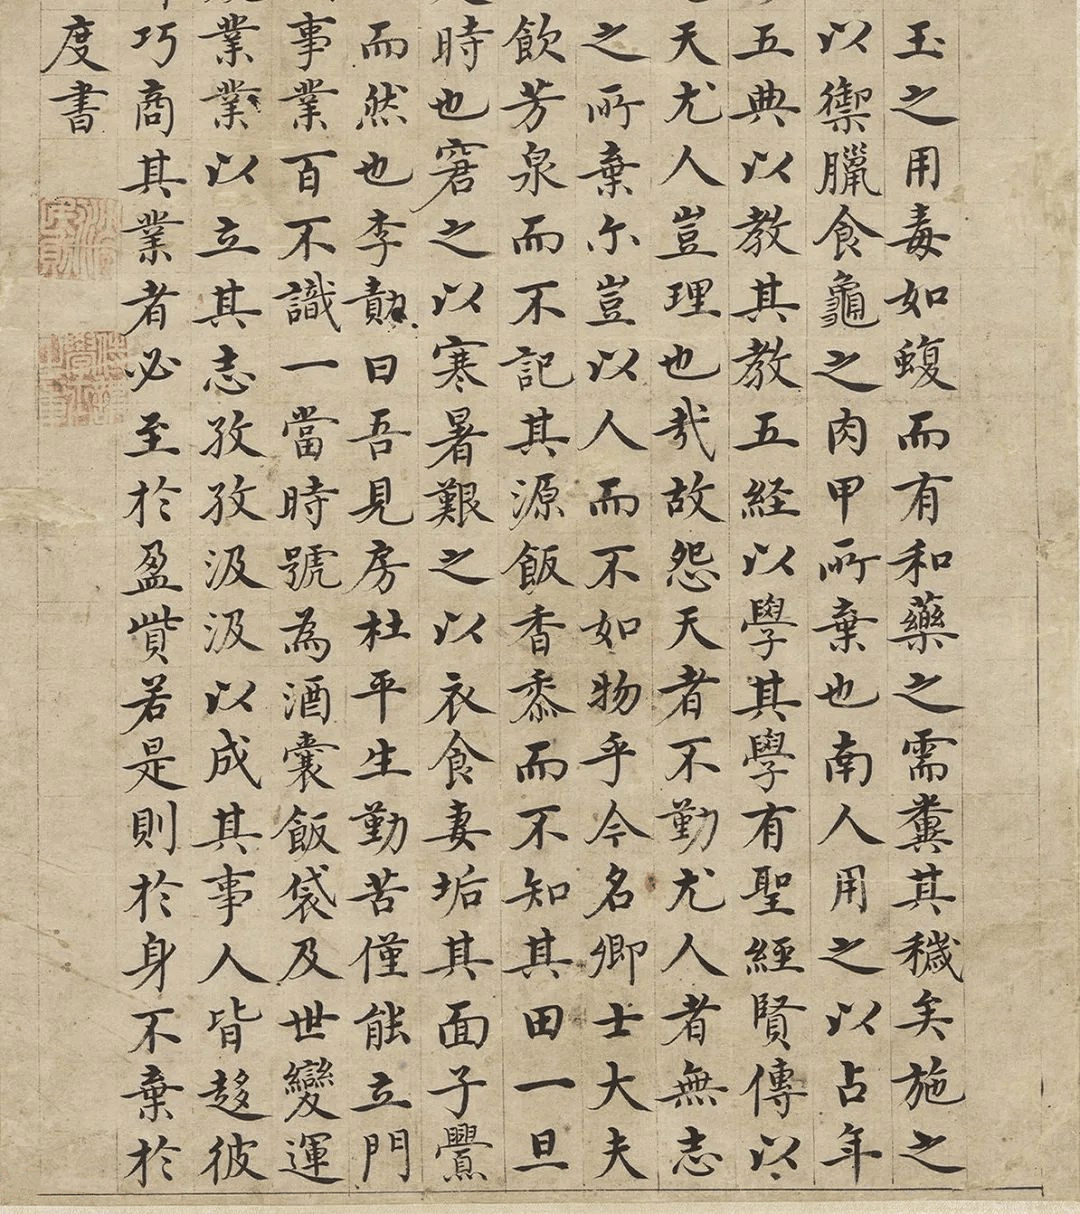 玉之用毒如蝮而有和藥之需糞其穢矣施之
以禦臘食龜之肉甲所棄也南人用之以占年
五典以教其教五経以學其學有聖經賢傳以
天尤人豈理也哉故怨天者不勤尤人者無志
之所棄尔豈以人而不如物乎今名卿士大夫
飲芳泉而不記其源飯香黍而不知其田一旦
時也窘之以寒暑艱之以衣食妻垢其面子釁
而然也李勣曰吾見房杜平生勤苦僅能立門
事業百不識一當時號為酒囊飯袋及世變運
業業以立其志孜孜汲汲以成其事人皆趍彼
巧商其業者必至於盈貲若是則於身不棄於
度書